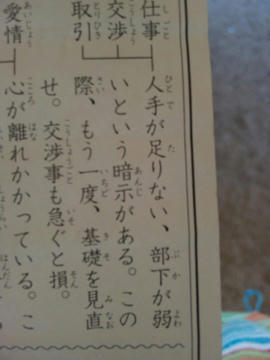 仕事
交渉
取引
人手が足りない、部下が弱
いという暗示がある。この
際、もう一度、基礎を見直
せ。交渉事も急ぐと損。
愛情
心が離れかかっている。こ